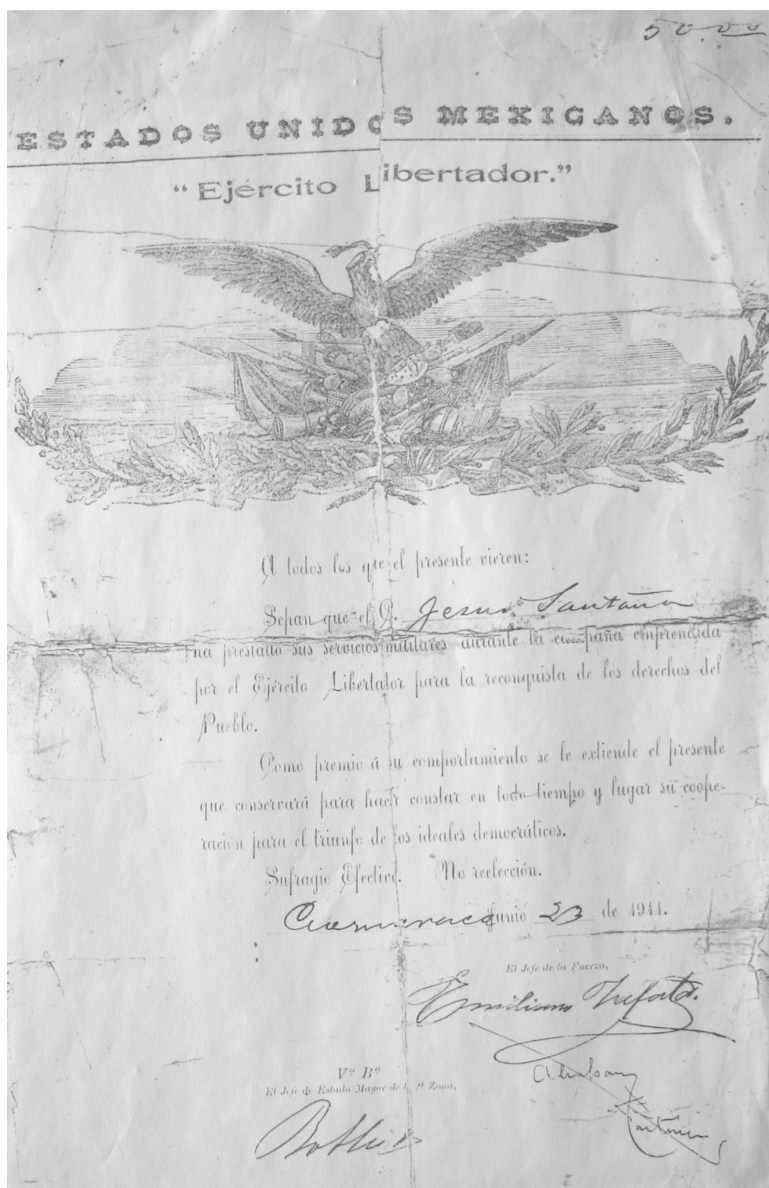 50.00
ESTADOS UNIDOS MEXICANOS.
"Ejército Libertador."
A todos los que el presente vieren:
Sepan que el C. Jesus Santaña
ha prestado sus servicios militares durante la campaña emprendida
por el Ejército Libertador para la reconquista de los derechos del
Pueblo.
Como premio á su comportamiento se le extiende el presente
que conservará para hacer constar en todo tiempo y lugar su coope-
ración para el triunfo de los ideales democráticos.
Sufragio Efectivo. No reelección.
Cuernavaca Junio 23 de 1911.
El Jefe de la Fuerza,
Emiliano Zapata.
Vº Bº
El Jefe de Estado Mayor de la 2ª Zona,